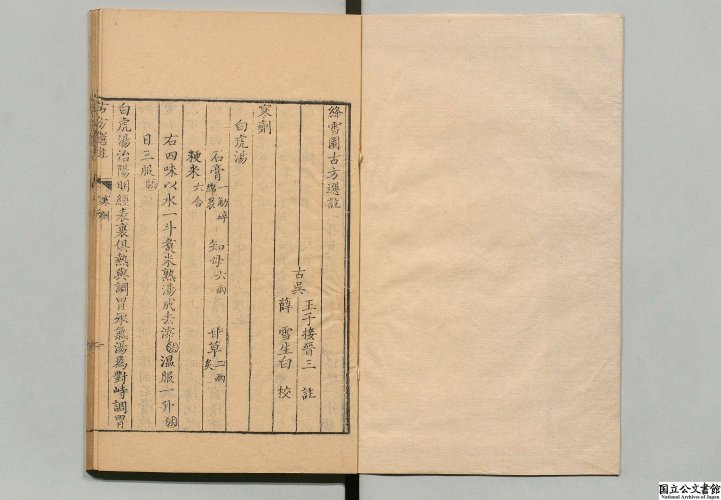 絳雪園古方選註
古吳
王子接晉三 註
薛 雪生白 校
寒劑
白虎湯
石膏一觔碎綿裹 知母六兩 甘草二兩炙
粳米六合
右四味以水一斗煮米熟湯成去滓溫服一升
日三服
白虎湯治陽明經表裏俱熱與調胃承氣湯爲對峙調胃
古方選註 寒劑
国立公文書館
National Archives of Japan